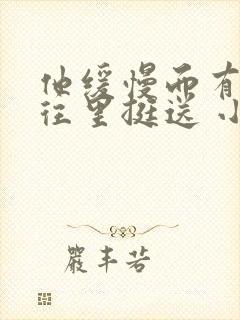 他缓慢而有
往里挺送 小
严丰若